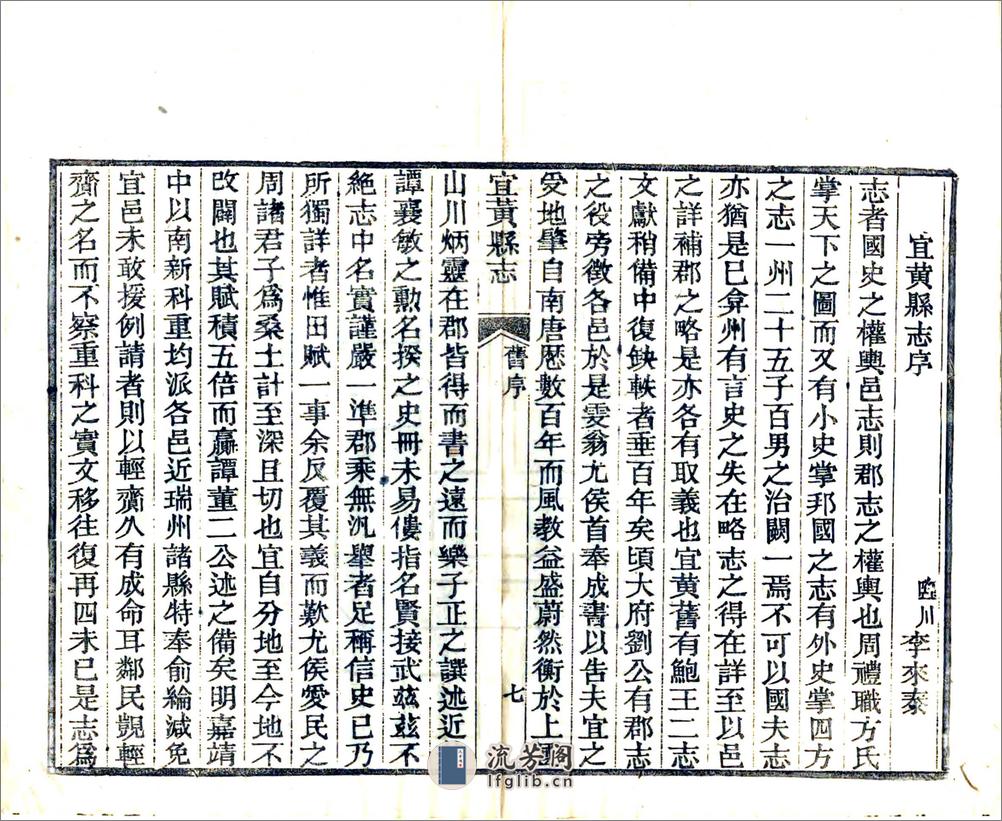 宜黃縣志序
臨川李來泰
志者國史之權輿邑志則郡志之權輿也周禮職方氏
掌天下之圖而又有小史掌邦國之志有外史掌四方
之志一州二十五子百男之治闕一焉不可以國夫志
亦猶是已弇州有言史之失在略志之得在詳至以邑
之詳補郡之略是亦各有取義也宜黃舊有鮑王二志
文獻稍備中復缺軼者垂百年矣頃大府劉公有郡志
之役旁徵各邑於是雯翁尤侯首奉成書以告夫宜之
受地肇自南唐歷數百年而風教益盛蔚然衡於上
宜黃縣志
舊序
七
山川炳靈在郡皆得而書之遠而樂子正之譔述近
譚襄敏之勳名揆之史冊未易僂指名賢接武茲茲不
絕志中名實謹嚴一準郡乘無汎舉者足稱信史已乃
所獨詳者惟田賦一事余反覆其義而歎尤侯愛民之
周諸君子爲桑土計至深且切也宜自分地至今地不
改闢也其賦積五倍而贏譚董二公述之備矣明嘉靖
中以南新科重均派各邑近瑞州諸縣特奉俞綸減免
宜邑未敢援例請者則以輕齎久有成命耳鄰民覬輕
齎之名而不察重科之實文移往復再四未已是志爲
流芳閣
lfglib.com